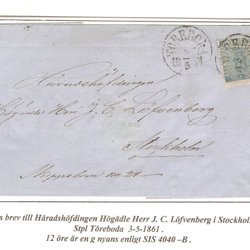 TÖREBODA
3
5
Häradshöfdingen
Högädle Herr J. C. Löfvenberg
Stockholm
Skeppsbron No 24
s brev till Häradshöfdingen Högädle Herr J. C. Löfvenberg i Stockhol
Stpl Töreboda 3-5-1861 .
12 öre är en g nyans enligt SIS 4040 –B .